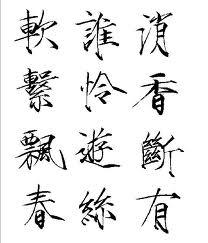 消香斷有
誰憐遊絲
軟繫飄春